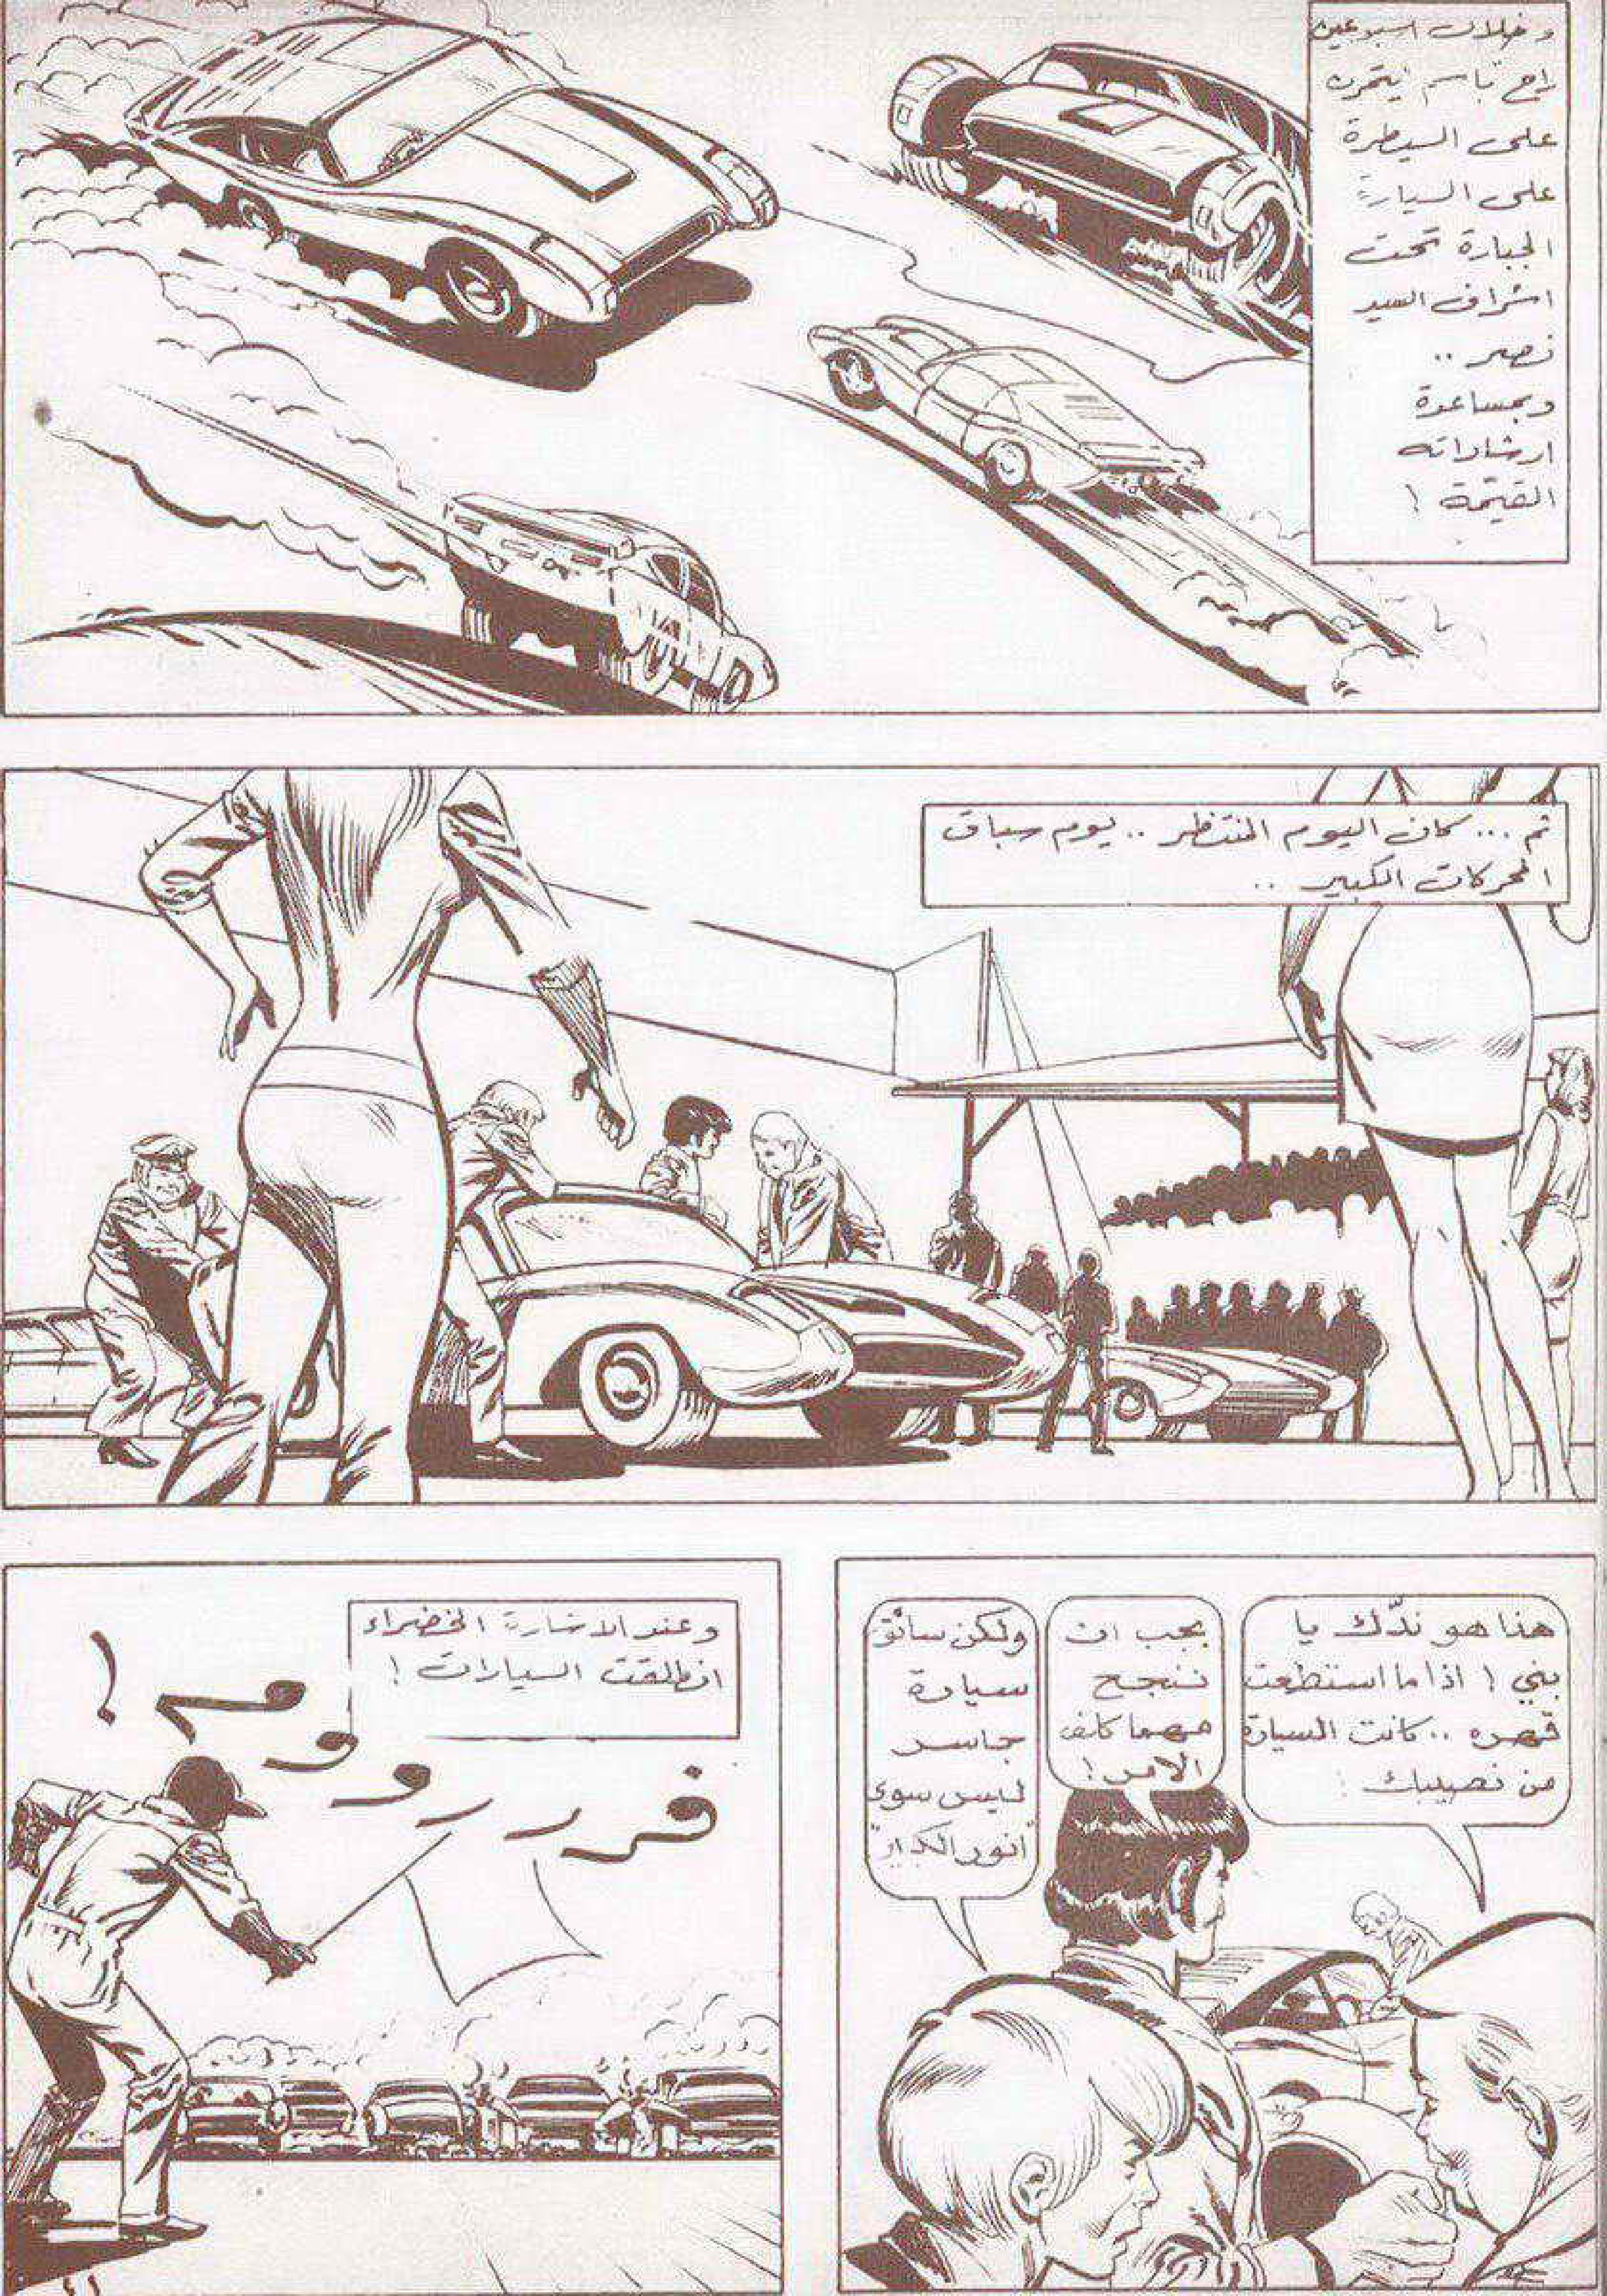 وخلال اسبوعين
راح باسم يتمرن
على السيطرة
على السيارة
الجبارة تحت
اشراف السيد
نصر ..
وبمساعدة
ارشاداته
القيّمة !
ثم ... كان اليوم المنتظر .. يوم سباق
المحركات الكبير ..
هذا هو ندّك يا
بني ! اذا ما استطعت
قهره .. كانت السيارة
من نصيبك :
يجب ان
ننجح
مهما كلف
الامر !
ولكن سائق
سيارة
جاسر
ليس سوى
"انور الكرار"
وعند الاشارة الخضراء
انطلقت السيارات !
فررروووم !